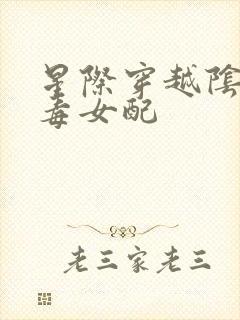 星際穿越陰
毒女配
老三家老三